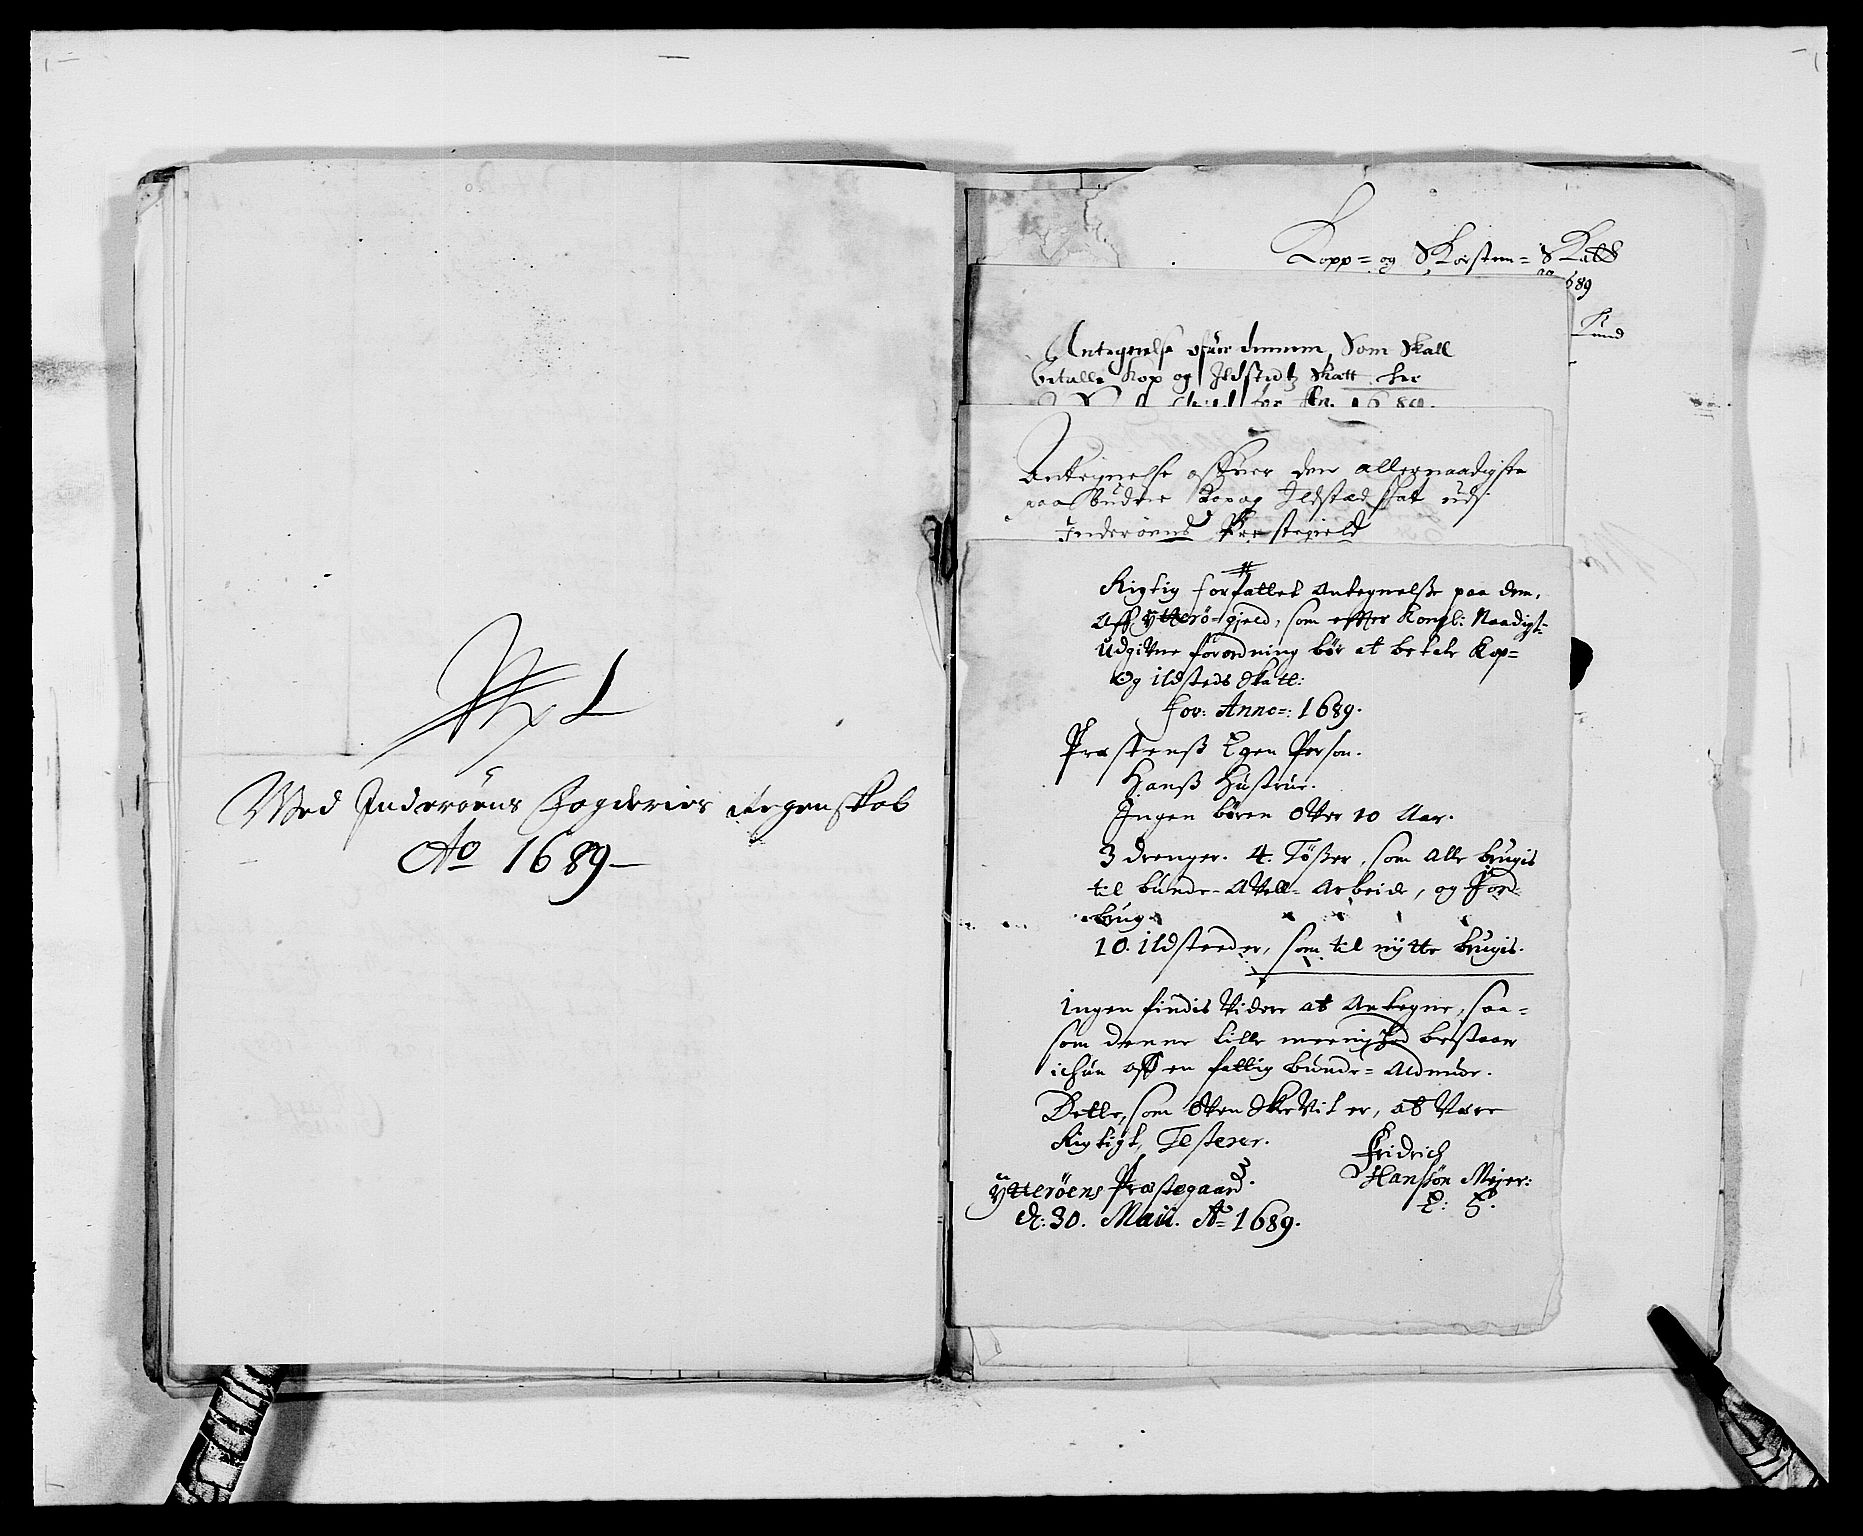 Med Inderøens fogderies Regenskab
Ao 1689
Kopp= og Skorsten= Skatt
689
Antegnelse ofuer dennem, Som Skall
betalle Kop og Ildstedtz Skatt her
for An. 1689.
Antegnelse offuer den allernaadigste
paabudne Kop og Ildsted skat udi
Inderøens Præstegield
Rigtig forfattet Antegnelse paa dem,
Aff ytterø-gield, som effter Kongl: Naadigst
Udgifne forordning bør at betale Kop=
Og ildsteds Skatt:
for: Anno=: 1689.
Præstenß Egen Person.
Hanß Hustrue.
Ingen børen Ofver 10 Aar.
3 drenger. 4. Tößer, som alle brugis
til bunde-Afvell-Arbeide, og Jord-
brug
10. ildsteeder, som til nytte brugis.
ingen findis Videre at Antegne, saa=
som denne lille meenighed bestaar
ichun aff en fattig bunde= Almue.
Dette, som ofven Skrevit er, at Være
Rigtigt, Testerer.
Ytterøens Præstegaard.
d: 30. Maii. Ao 1689.
Fridrich
Hansøn Mejer: